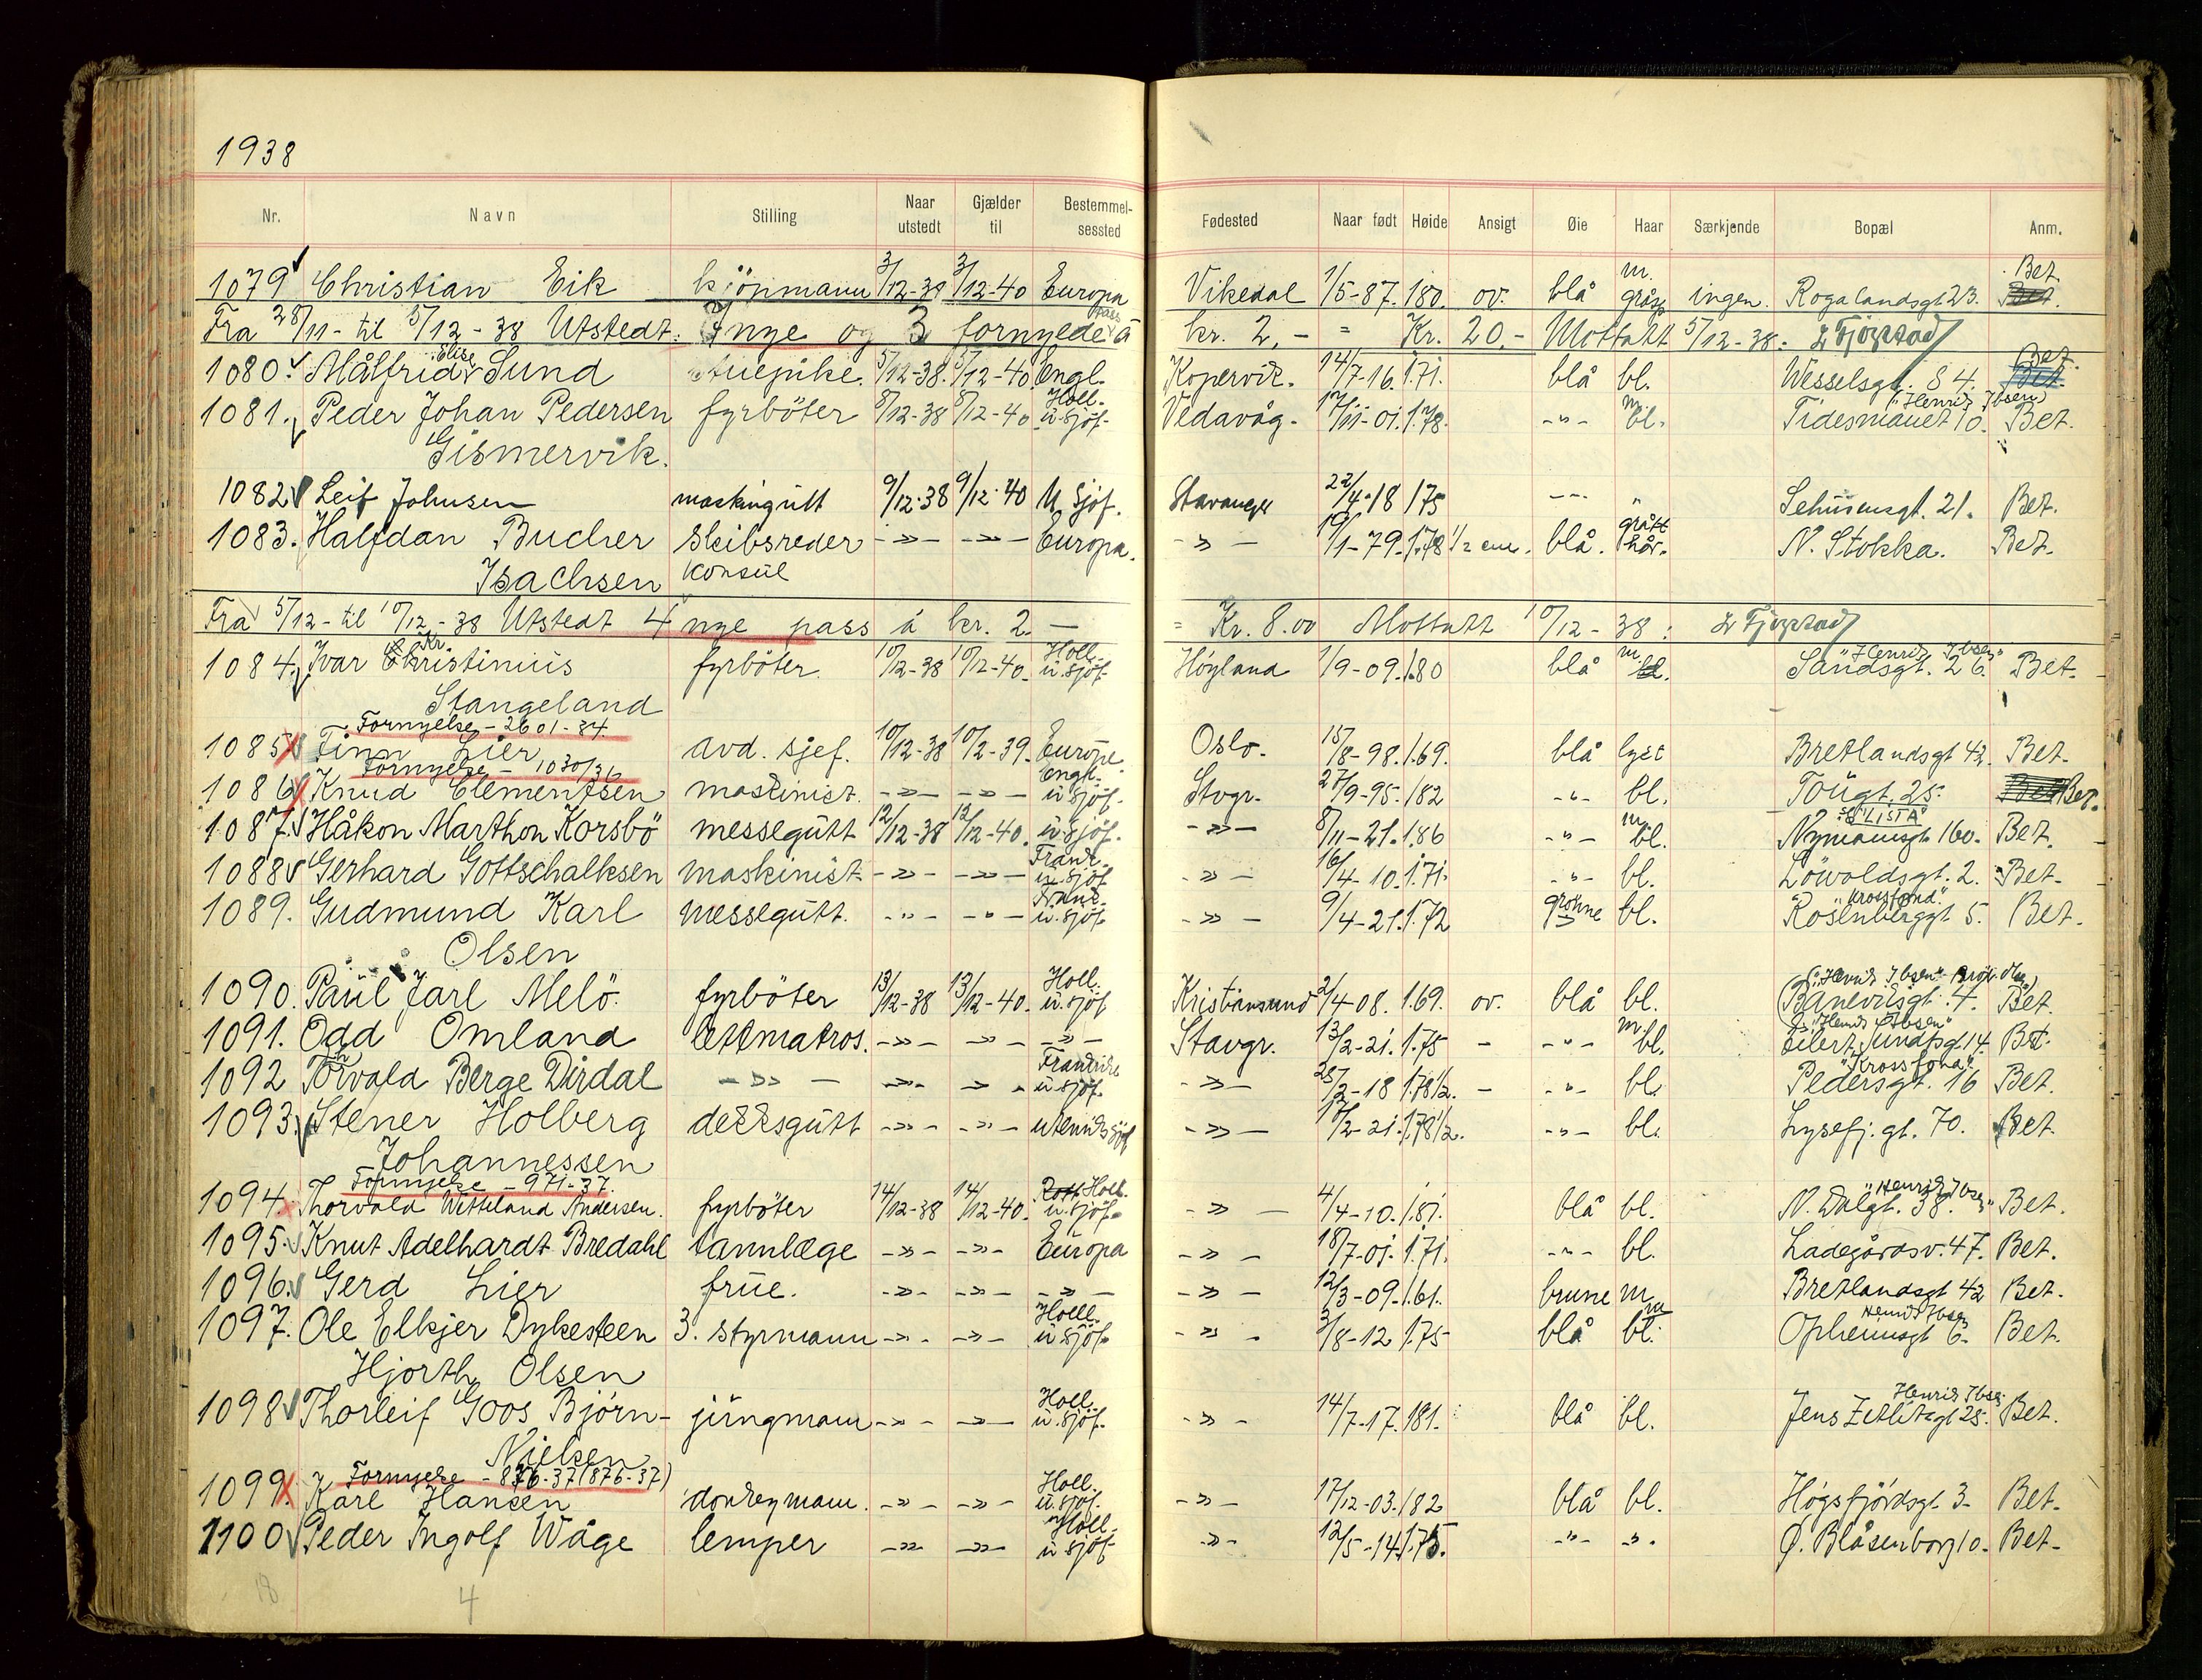 1938
Nr. Navn Stilling Naar utstedt Gjælder til Bestemmelsessted Fødested Naar født Høide Ansigt Øie Haar Særkjende Bopæl Anm.
1079 Christian Eik kjöpmann 3/12-38 3/12-40 Europa Vikedal 1/5-87. 180. ov. blå m. gråsp ingen. Rogalandsgt 23. Bet. Bet.
Fra 28/11- til 5/12-38 Utstedt: 7 nye og 3 fornyede pass á kr. 2,- = Kr. 20,- Mottatt 5/12-38.
1080. Målfrid Elise Sund stuepike. 5/12-38. 5/12-40. Engl. Kopervik. 14/7-16. 1.71. blå bl. Wesselsgt. 84. Bet. Bet.
1081. Peder Johan Pedersen fyrböter 8/12-38 8/12-40 Holl. u. sjöf. Vedavåg. 17/11-01. 1.78. -"- m bl. "Henrik Ibsen" Tidesmauet 10. Bet.
Gismervik.
1082 Leif Johnsen maskingutt 9/12-38 9/12-40 U. Sjöf. Stavanger 22/4-18 175 -"- " Sehusensgt. 21. Bet.
1083. Halfdan Bucher Skibsreder -»- -»- Europa. -»- 19/1-79. 1.78 1/2 cm. blå. grått hår. N. Stokka. Bet.
Isachsen konsul
Fra 5/12- til 10/12-38 Utstedt 4 nye pass á kr. 2.- = Kr. 8.00 Mottatt 10/12-38:
1084. Ivar Kr. Christinius fyrböter. 10/12-38 10/12-40. Holl. u. sjöf. Höyland 1/9-09. 1.80 blå m. bl. "Henrik Ibsen" Sandsgt. 26. Bet.
Stangeland
Fornyelse - 2601-34.
1085 Finn Lier avd. sjef. 10/12-38 10/2-39. Europe. Oslo. 15/8-98. 1.69. blå lyst Bretlandsgt 42. Bet.
Fornyelse - 1030/36
1086 Knud Clementsen maskinist. -»- -»- Engl. u. sjöf. Stvgr. 27/9-95. 182 -"- bl. Tougt. 25. Bet Bet.
1087. Håkon Marthon Korsbö messegutt 12/12-38 12/12-40. u. sjöf. -»- 8/11-21. 1.86 -"- m bl. "LISTA" Nymannsgt 160. Bet.
1088 Gerhard Gottschalksen maskinist -»- -»- Frank. u. sjöf -»- 16/4-10. 1.71. -"- bl. Lövoldsgt. 2. Bet.
1089. Gudmund Karl messegutt. -"- -"- Frank. u. sjöf -»- 9/4-21. 1.72 gröhne bl. "Krossfond." Rosenberggt 5. Bet.
Olsen
1090. Paul Jarl Melö. fyrböter 13/12-38 13/12-40. Holl. u. sjöf Kristiansund 2/4-08. 1.69. ov. blå bl. ("Henrik Ibsen" Banevigsgt. 4. Bet.
1091. Odd Omland lettmatros. -»- -»- -»- Stavgr. 13/2-21. 1.75 - -"- m. bl. "Henrik Ibsen" Eilert Sundsgt. 14. Bet.
1092 Thorvald Berge Dirdal -»- -»- -»- Frankrike u. sjöf. -»- 28/2-18 1.78 1/2. - -"- bl. "Krossfond" Pedersgt. 16 Bet.
1093. Stener Holberg dekksgutt -»- -»- utenriks sjöf -»- 17/2-21. 1.78 1/2. -"- bl. Lysefj. gt. 70. Bet.
Johannessen
Fornyelse - 971-37.
1094. Thorvald Wetteland Andersen. fyrböter 14/12-38 14/12-40. Rott Holl. u. sjöf. -»- 4/4-10. 1.81. blå bl. "Henrik Ibsen" N. Dalgt. 38. Bet.
1095. Knut Adelhardt Bredahl tannlæge -»- -»- Europa -»- 18/7-01. 1.71. -"- bl. Ladegårdsv. 47. Bet.
1096. Gerd Lier frue. -»- -»- -»- -»- 12/3-09. 1.61. brune m Bretlandsgt 42 Bet.
1097. Ole Elkjer Dykesteen 3. styrmann -»- -»- Holl. u sjöf. -»- 3/8-12 1.75 blå m bl. Henrik Ibsen Opheimsgt 6. Bet.
Hjorth Olsen
1098 Thorleif Goos Björn- jungmann -»- -»- Holl. u. sjöf. -»- 14/7-17. 181. blå bl. Henrik Ibsen Jens Zetlitzgt 28. Bet.
Nielsen
Fornyelse - 876-37 (876-37)
1099. Karl Hansen donkeymann. -»- -»- Holl. u. sjöf. -»- 17/12-03. 182 blå bl. Högsfjordsgt. 3. Bet.
1100 Peder Ingolf Wåge lemper -»- -»- Holl. u sjöf -»- 12/5-14. 1.75. -"- -"- Ø. Blåsenborg 10. Bet.
18 4